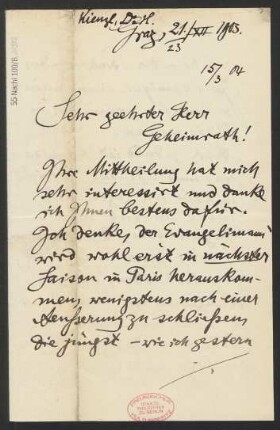 Kienzl, Dr. W.
Graz, 21./XII 1903.
23
15/3 04
Sehr geehrter Herr
Geheimrath!
Ihre Mittheilung hat mich
sehr interessirt und danke
ich Ihnen bestens dafür.
Ich denke, der „Evangelimann"
wird wohl erst in nächster
Saison in Paris herauskom-
men, wenigstens nach einer
Aeußerung zu schließen,
die jüngst – wie ich gestern